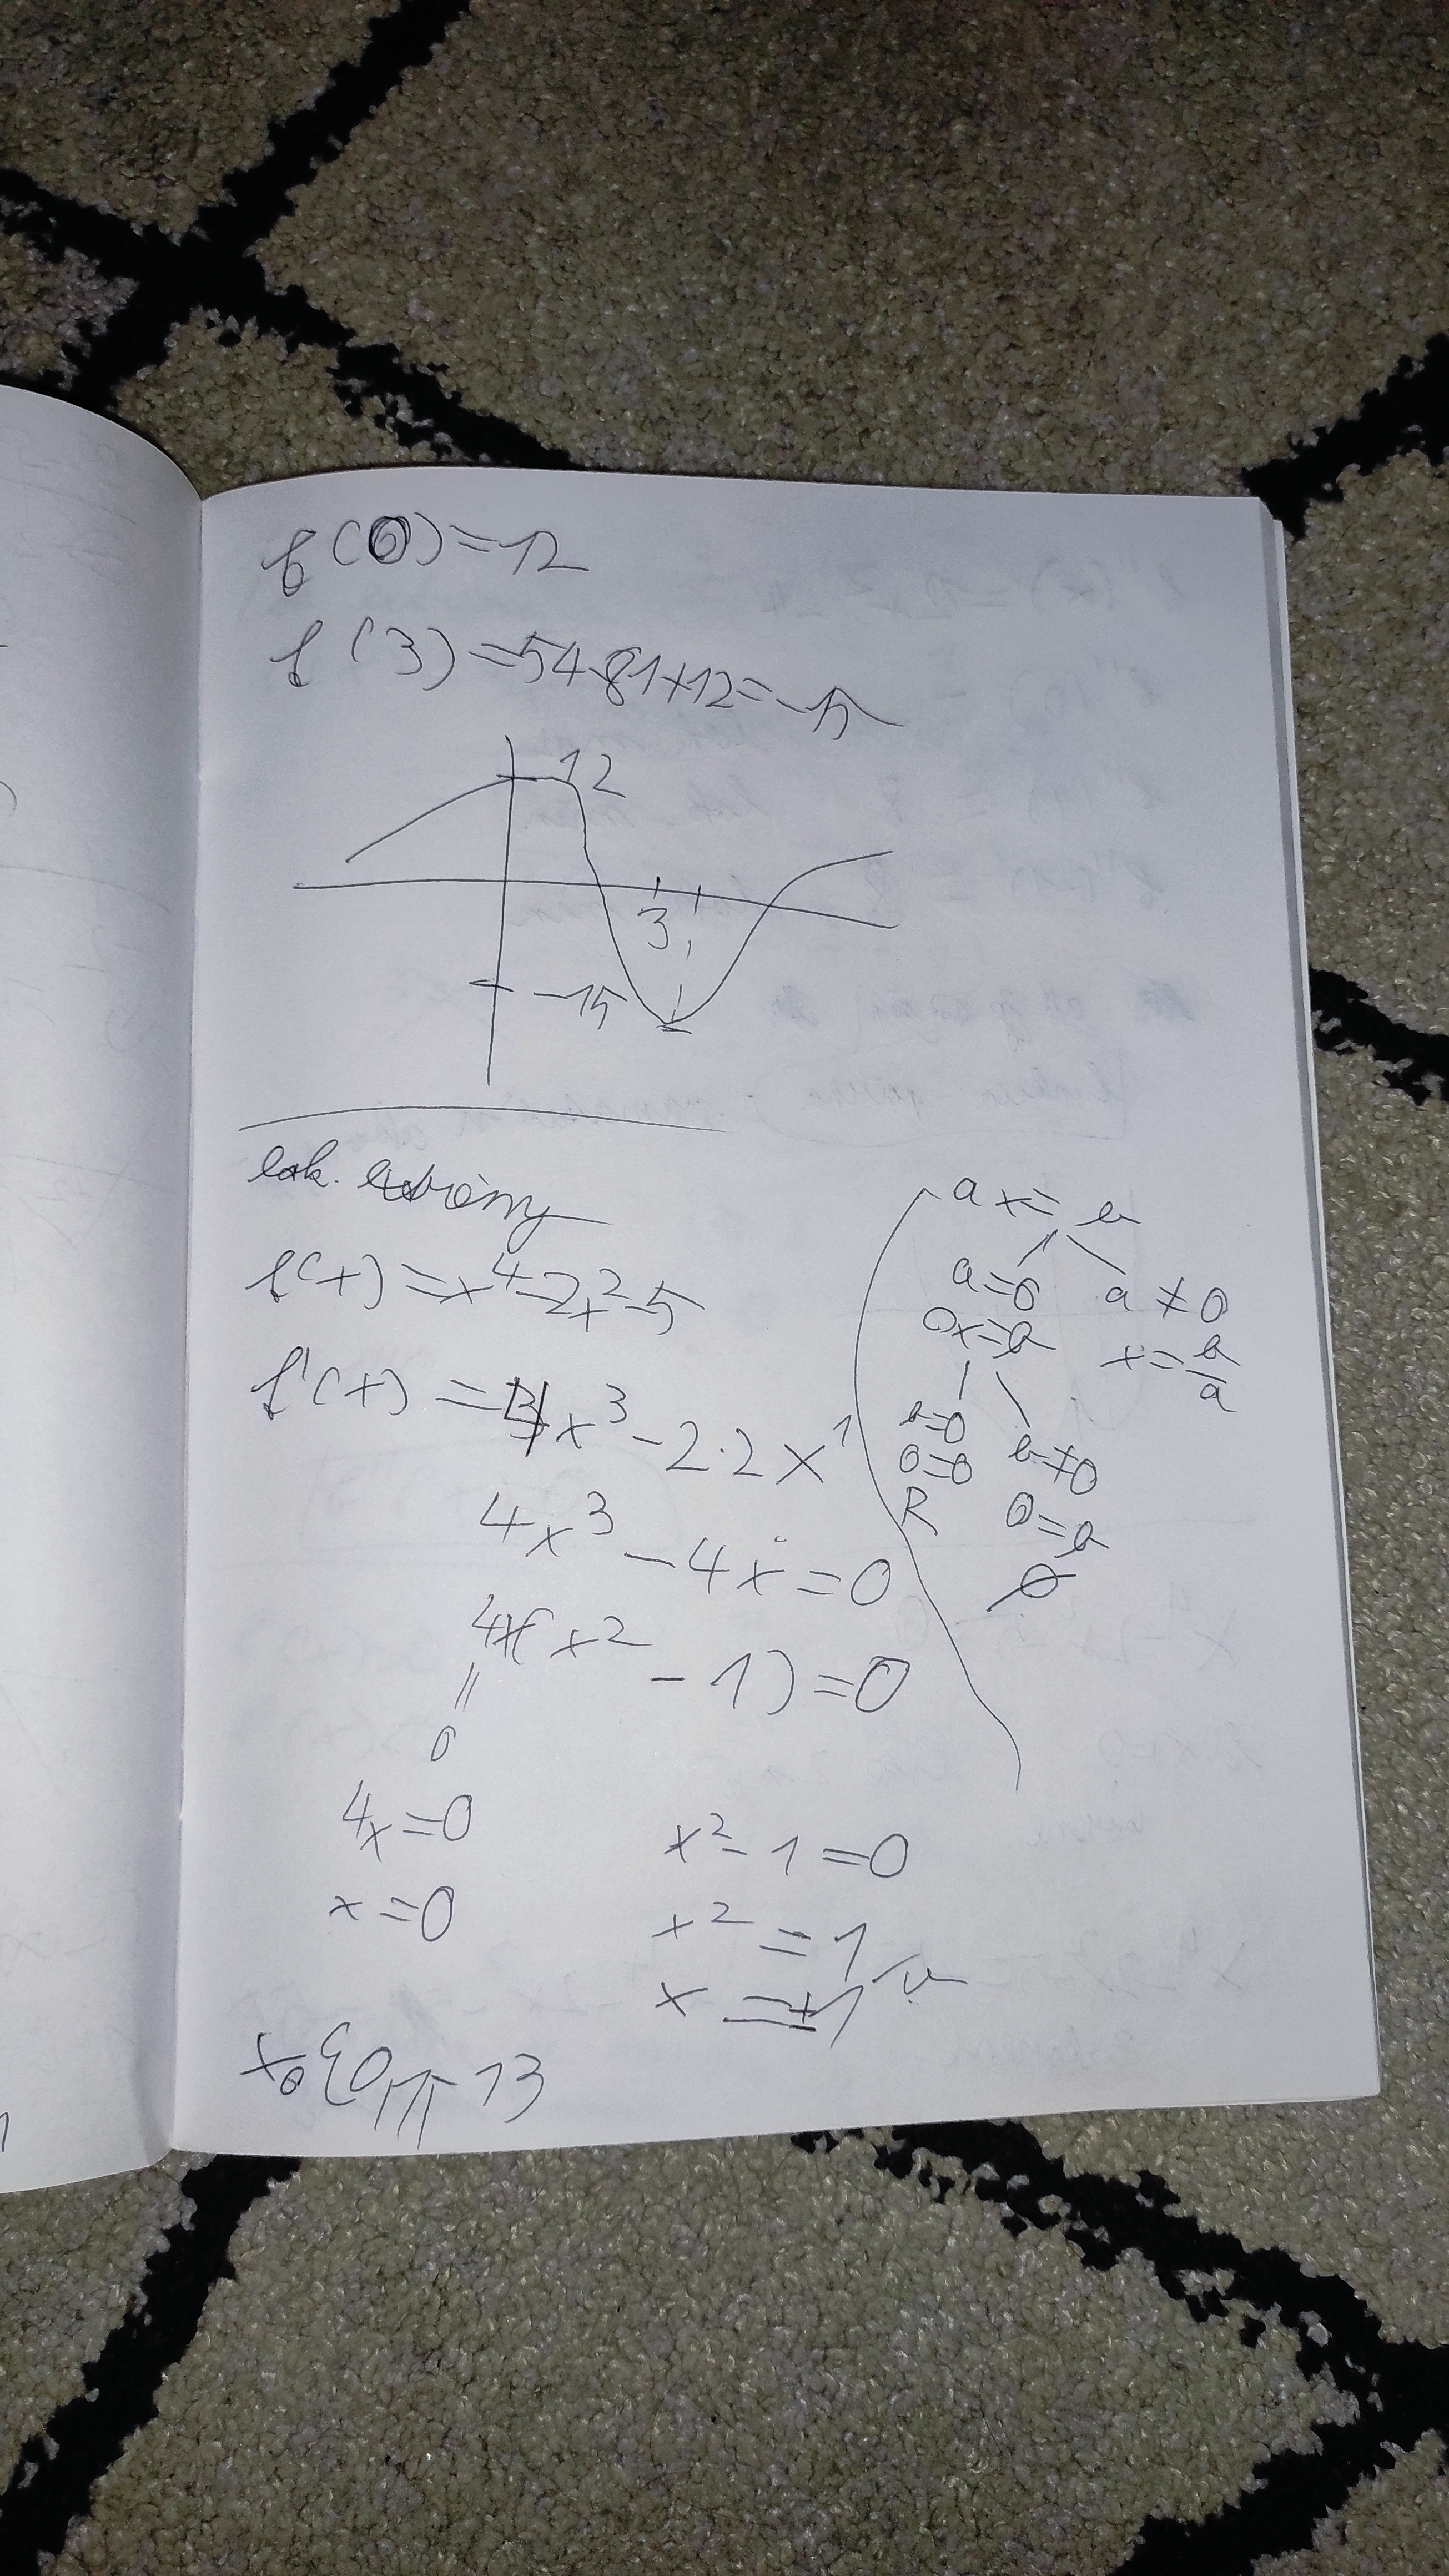 f(0)=12
f(3)=54-81+12=-15
12
3
-15
lok. extrémy
f(x)=x⁴-2x²-5
f'(x)=4x³-2·2x¹
4x³-4x=0
4x(x²-1)=0
=
0
4x=0
x=0
x²-1=0
x²=1
x=±1
x₀{0,1,-1}
ax=b
a=0
a≠0
0x=b
x=b/a
b=0
b≠0
0=0
0=b
R
∅